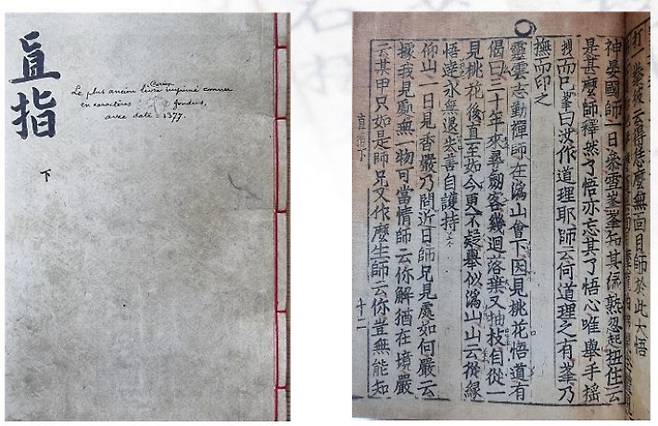 直指
下
Coréen
Le plus ancien livre imprimé connu
en caractères fondus,
avec date = 1377.
云得恁麼無面目師於此大悟
神晏國師一日參雪峯峯知其緣熟忽起搊住云
是甚麼師釋然了悟亦忘其了悟心唯舉手搖
拽而已峯曰汝作道理耶師云何道理之有峯乃
撫而印之
靈雲志勤禪師在溈山會下因見桃花悟道有
偈曰三十年來尋劒客幾迴落葉又抽枝自從一
見桃花後直至如今更不疑舉似溈山山云從緣
悟達永無退失善自護持
仰山一日見香嚴乃問近日師兄見處如何嚴云
據我見處無一物可當情師云你解猶在境嚴
云某甲只如是師兄又作麼生師云你豈無能知
直指下
十二